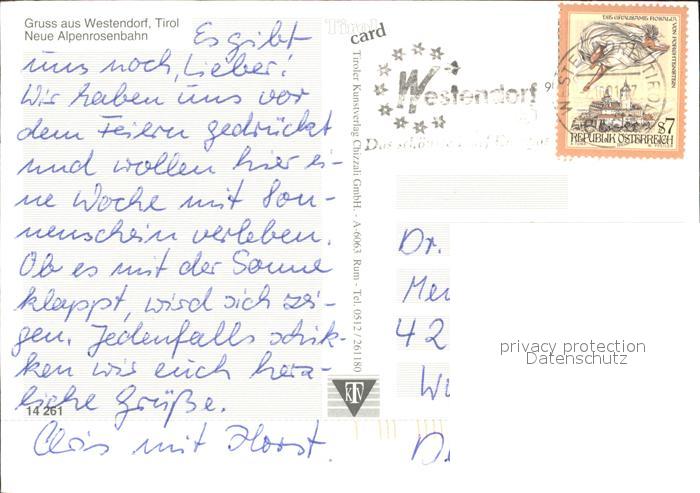 Gruss aus Westendorf, Tirol
Neue Alpenrosenbahn
Es gibt
uns noch, Lieber!
Wir haben uns vor
dem Feiern gedrückt
und wollen hier ei-
ne Woche mit Son-
nenschein verleben.
Ob es mit der Sonne
klappt, wird sich zei-
gen. Jedenfalls schik-
ken wir euch herz-
liche Grüße.
Chris mit Horst.
14 261
Tirol
card
Tiroler Kunstverlag Chizzali GmbH. - A-6063 Rum - Tel. 0512/261180
KTV
Westendorf
DIE GRAUSAME ROSALIA
VON FORCHTENSTEIN
S7
REPUBLIK ÖSTERREICH
WESTENDORF TIROL
Dr.
42
privacy protection
Datenschutz